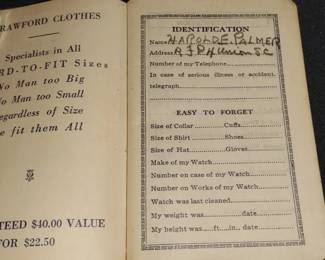 RAWFORD CLOTHES
Specialists in All
RD-TO-FIT Sizes
No Man too Big
No Man too Small
egardless of Size
e fit them All
TEED $40.00 VALUE
FOR $22.50
IDENTIFICATION
Name HAROLD E. PALMER
Address
Number of my Telephone
In case of serious illness or accident,
telegraph
EASY TO FORGET
Size of Collar Cuffs
Size of Shirt Shoes
Size of Hat Gloves
Make of my Watch
Number on case of my Watch
Number on Works of my Watch
Watch was last cleaned
My weight was date
My height was ft in date